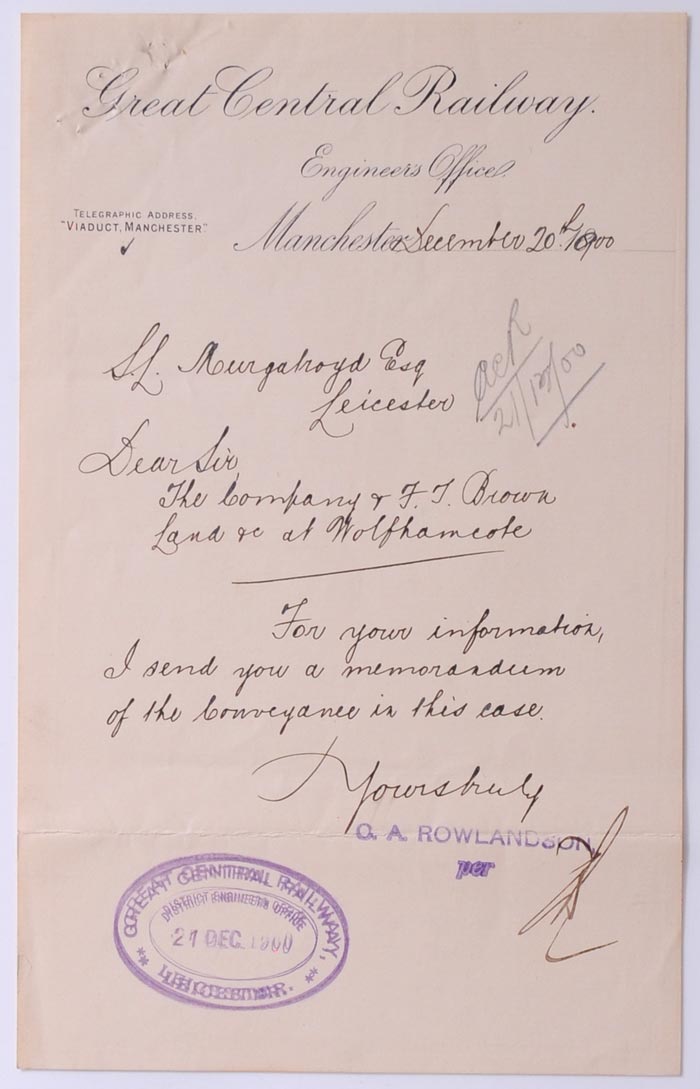 Great Central Railway.
Engineer's Office.
TELEGRAPHIC ADDRESS.
"VIADUCT, MANCHESTER"
Manchester December 20th 1900
S.L. Murgatroyd Esq
Leicester
ack
21/12/00
Dear Sir,
The Company & F. T. Brown
Land &c at Wolfhamcote
For your information,
I send you a memorandum
of the Conveyance in this case.
Yours truly
C. A. ROWLANDSON,
per
GREAT CENTRAL RAILWAY,
DISTRICT ENGINEERS OFFICE
21 DEC. 1900
LEICESTER.